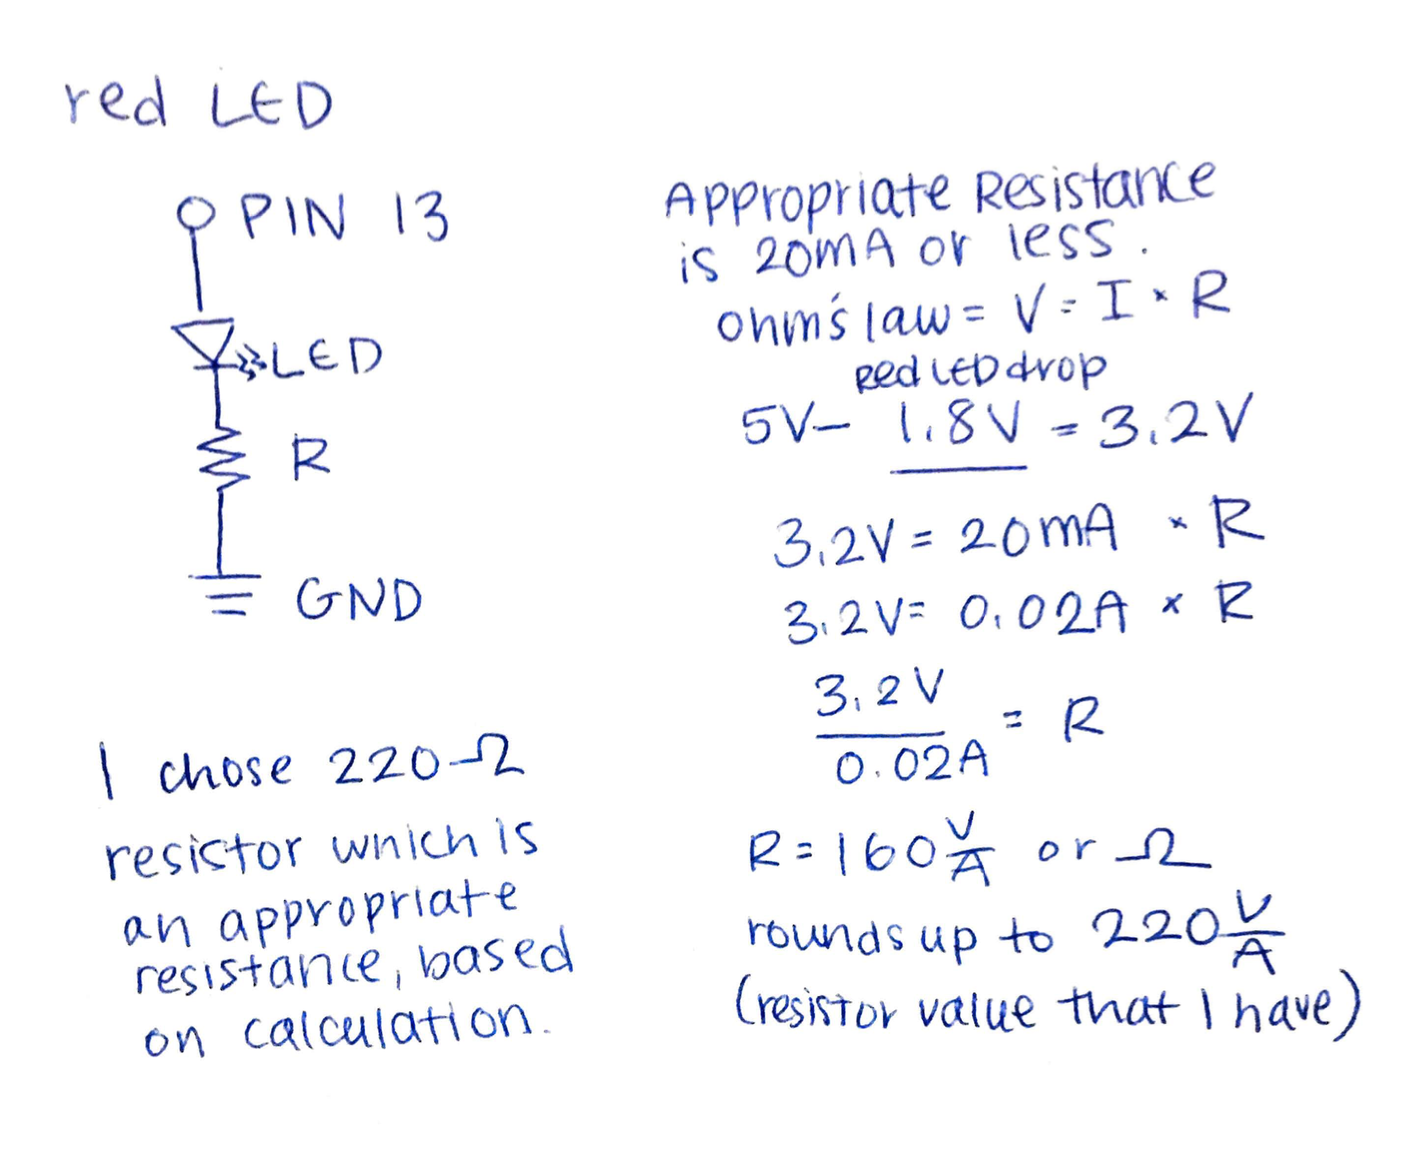 red LED
PIN 13
LED
R
GND
I chose 220Ω
resistor which is
an appropriate
resistance, based
on calculation.
Appropriate Resistance
is 20mA or less.
ohm's law = V = I × R
Red LED drop
5V - 1.8V = 3.2V
3.2V = 20mA × R
3.2V = 0.02A × R
3.2V
0.02A = R
R = 160 V/A or Ω
rounds up to 220 V/A
(resistor value that I have)